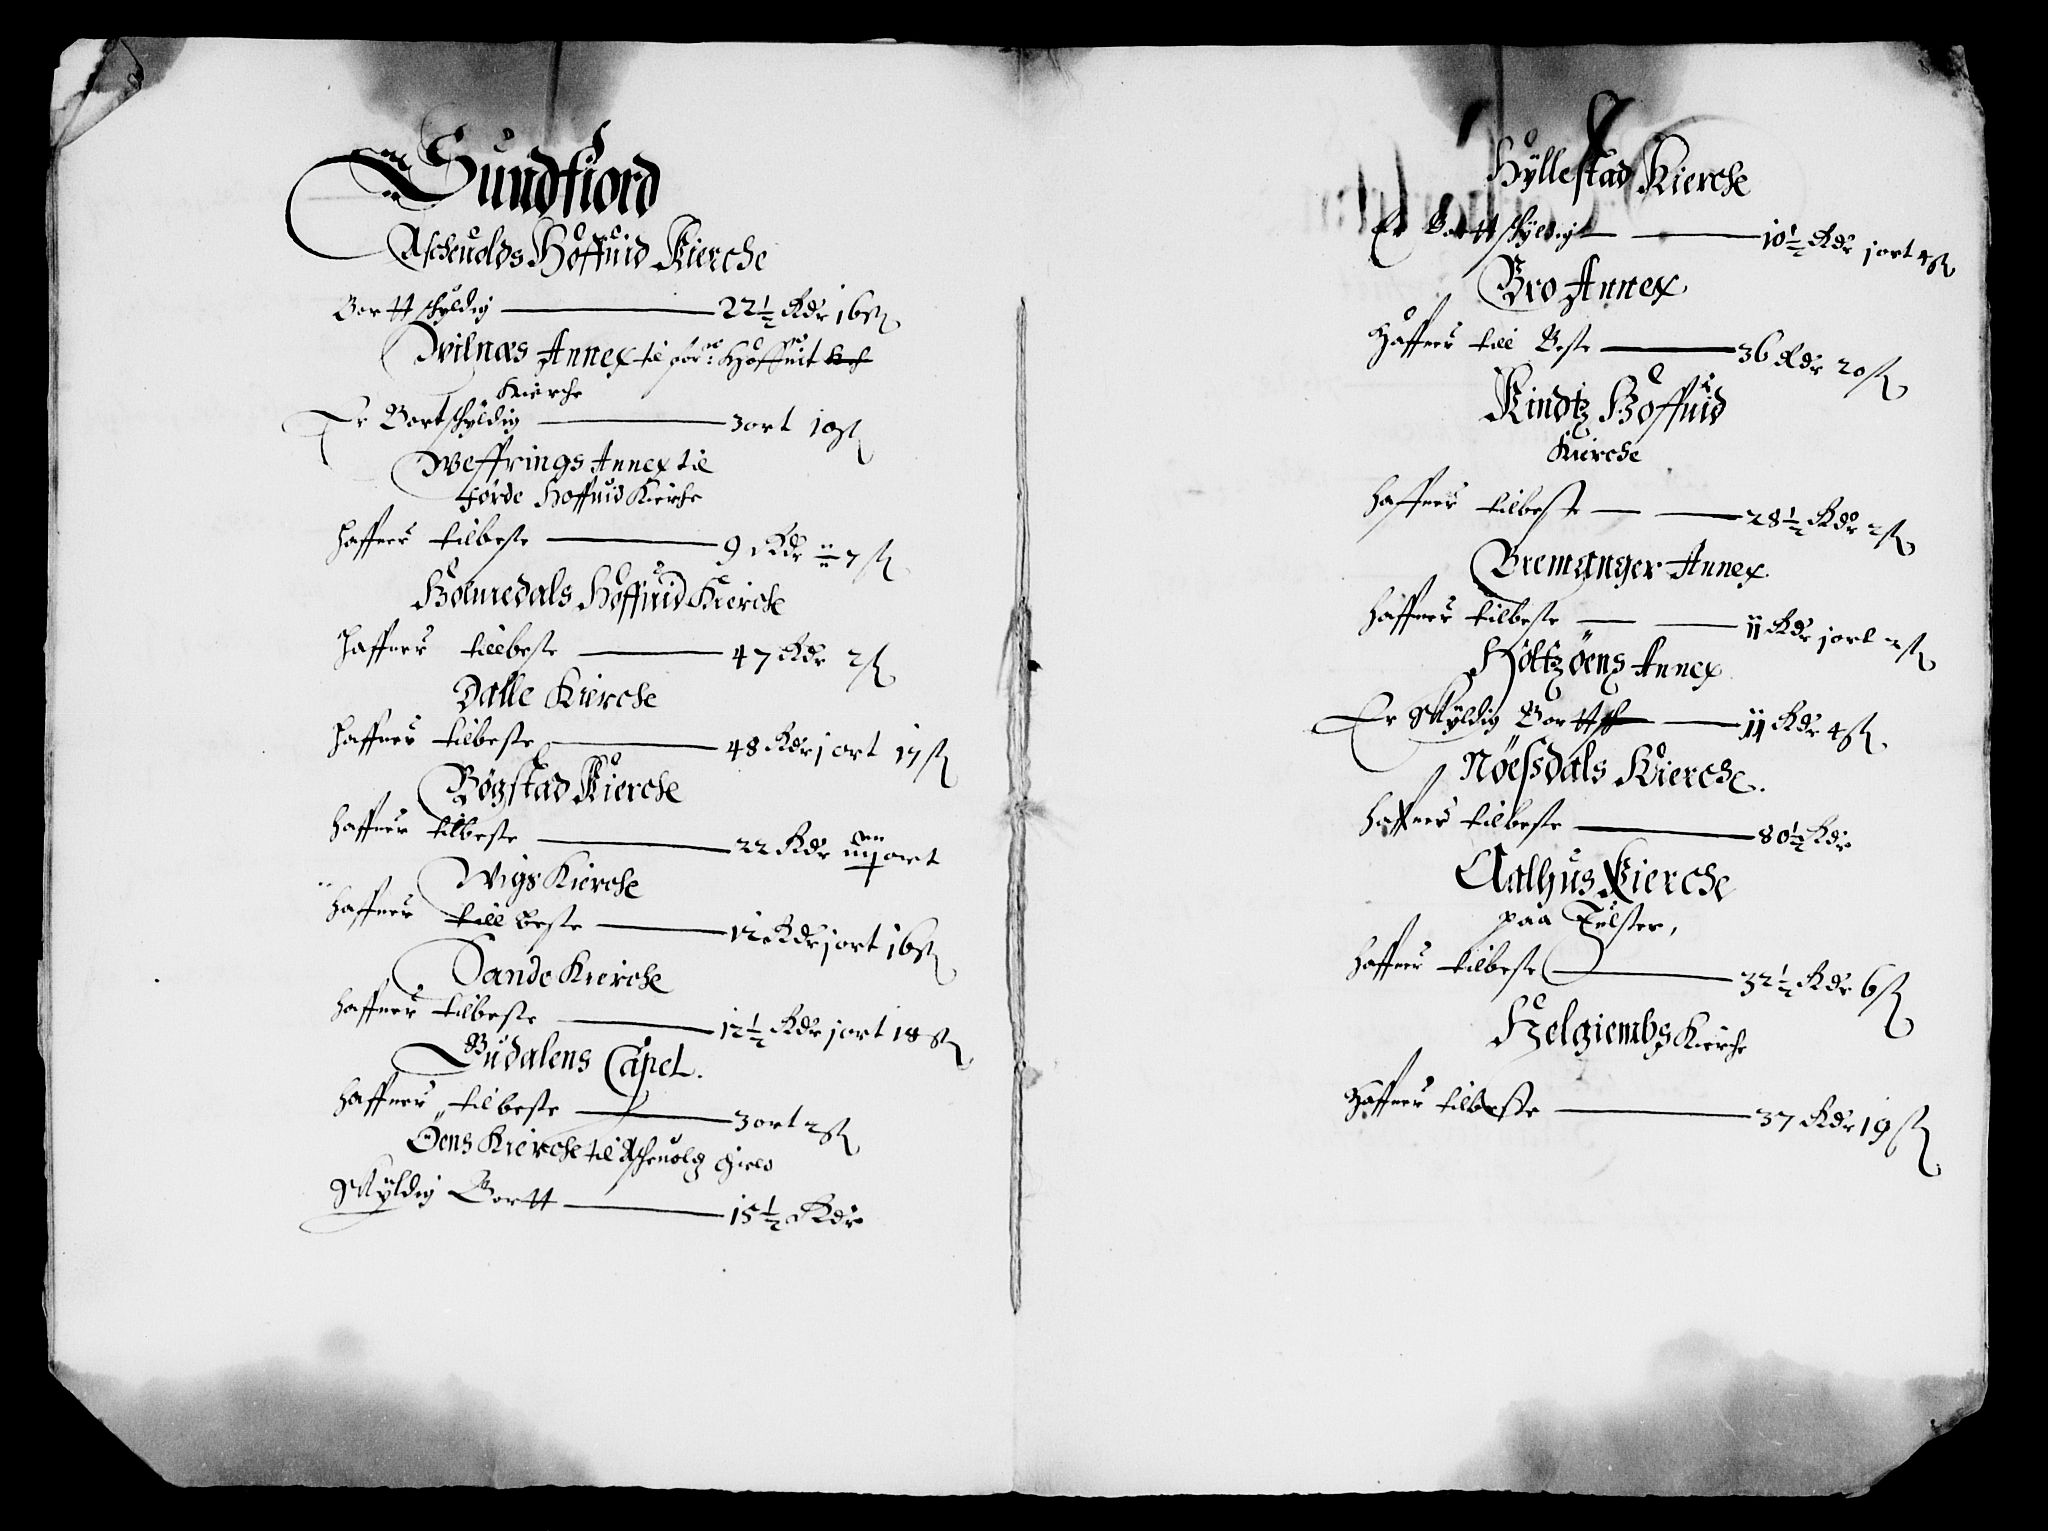 Sundfiord
Ascheuolds Hoffuid Kierche
Bortt schyldig 22½ Rdr 16 ß
Wilnæs Annex til for:ne Hoffuit
Kierche
Er Bortschyldig 3 ort 10 ß
Weffrings Annex til
Førde Hoffuid Kierche
Haffuer tilbeste 9 Rdr 7 ß
Holmedals Hoffuid Kierche
Haffuer tillbeste 47 Rdr 2 ß
Dalle Kierche
Haffuer tilbeste 48 Rdr j ort 17 ß
Bøgstad Kierche
Haffuer tilbeste 22 Rdr ort
Wigs Kierche
Haffuer till beste 12 Rdr j ort 16 ß
Sande Kierche
Haffuer tilbeste 12½ Rdr j ort 18 ß
Büdalens Capel.
Haffuer tilbeste 3 ort 2 ß
Öens Kierche til Ascheuolg gield
Skÿldig Bortt 15½ Rdr
Hÿllestad Kierche
Er Bortt schÿldig 10½ Rdr j ort 4 ß
Bro Annex
Haffuer till Beste 36 Rdr 20 ß
Kindtz Hoffuid
Kierche
Haffuer tilbeste 28½ Rdr 2 ß
Bremanger Annex
Haffuer tilbeste 11 Rdr j ort 2 ß
Holtzöens Annex
Er Skÿldig Bortt 11 Rdr 4 ß
Nöessdals Kierche.
Haffuer tilbeste 80½ Rdr
Aalhus Kierche
paa Iulster,
Haffuer tilbeste 32½ Rdr 6 ß
Helgiembs Kierche
Haffuer tilbeste 37 Rdr 19 ß